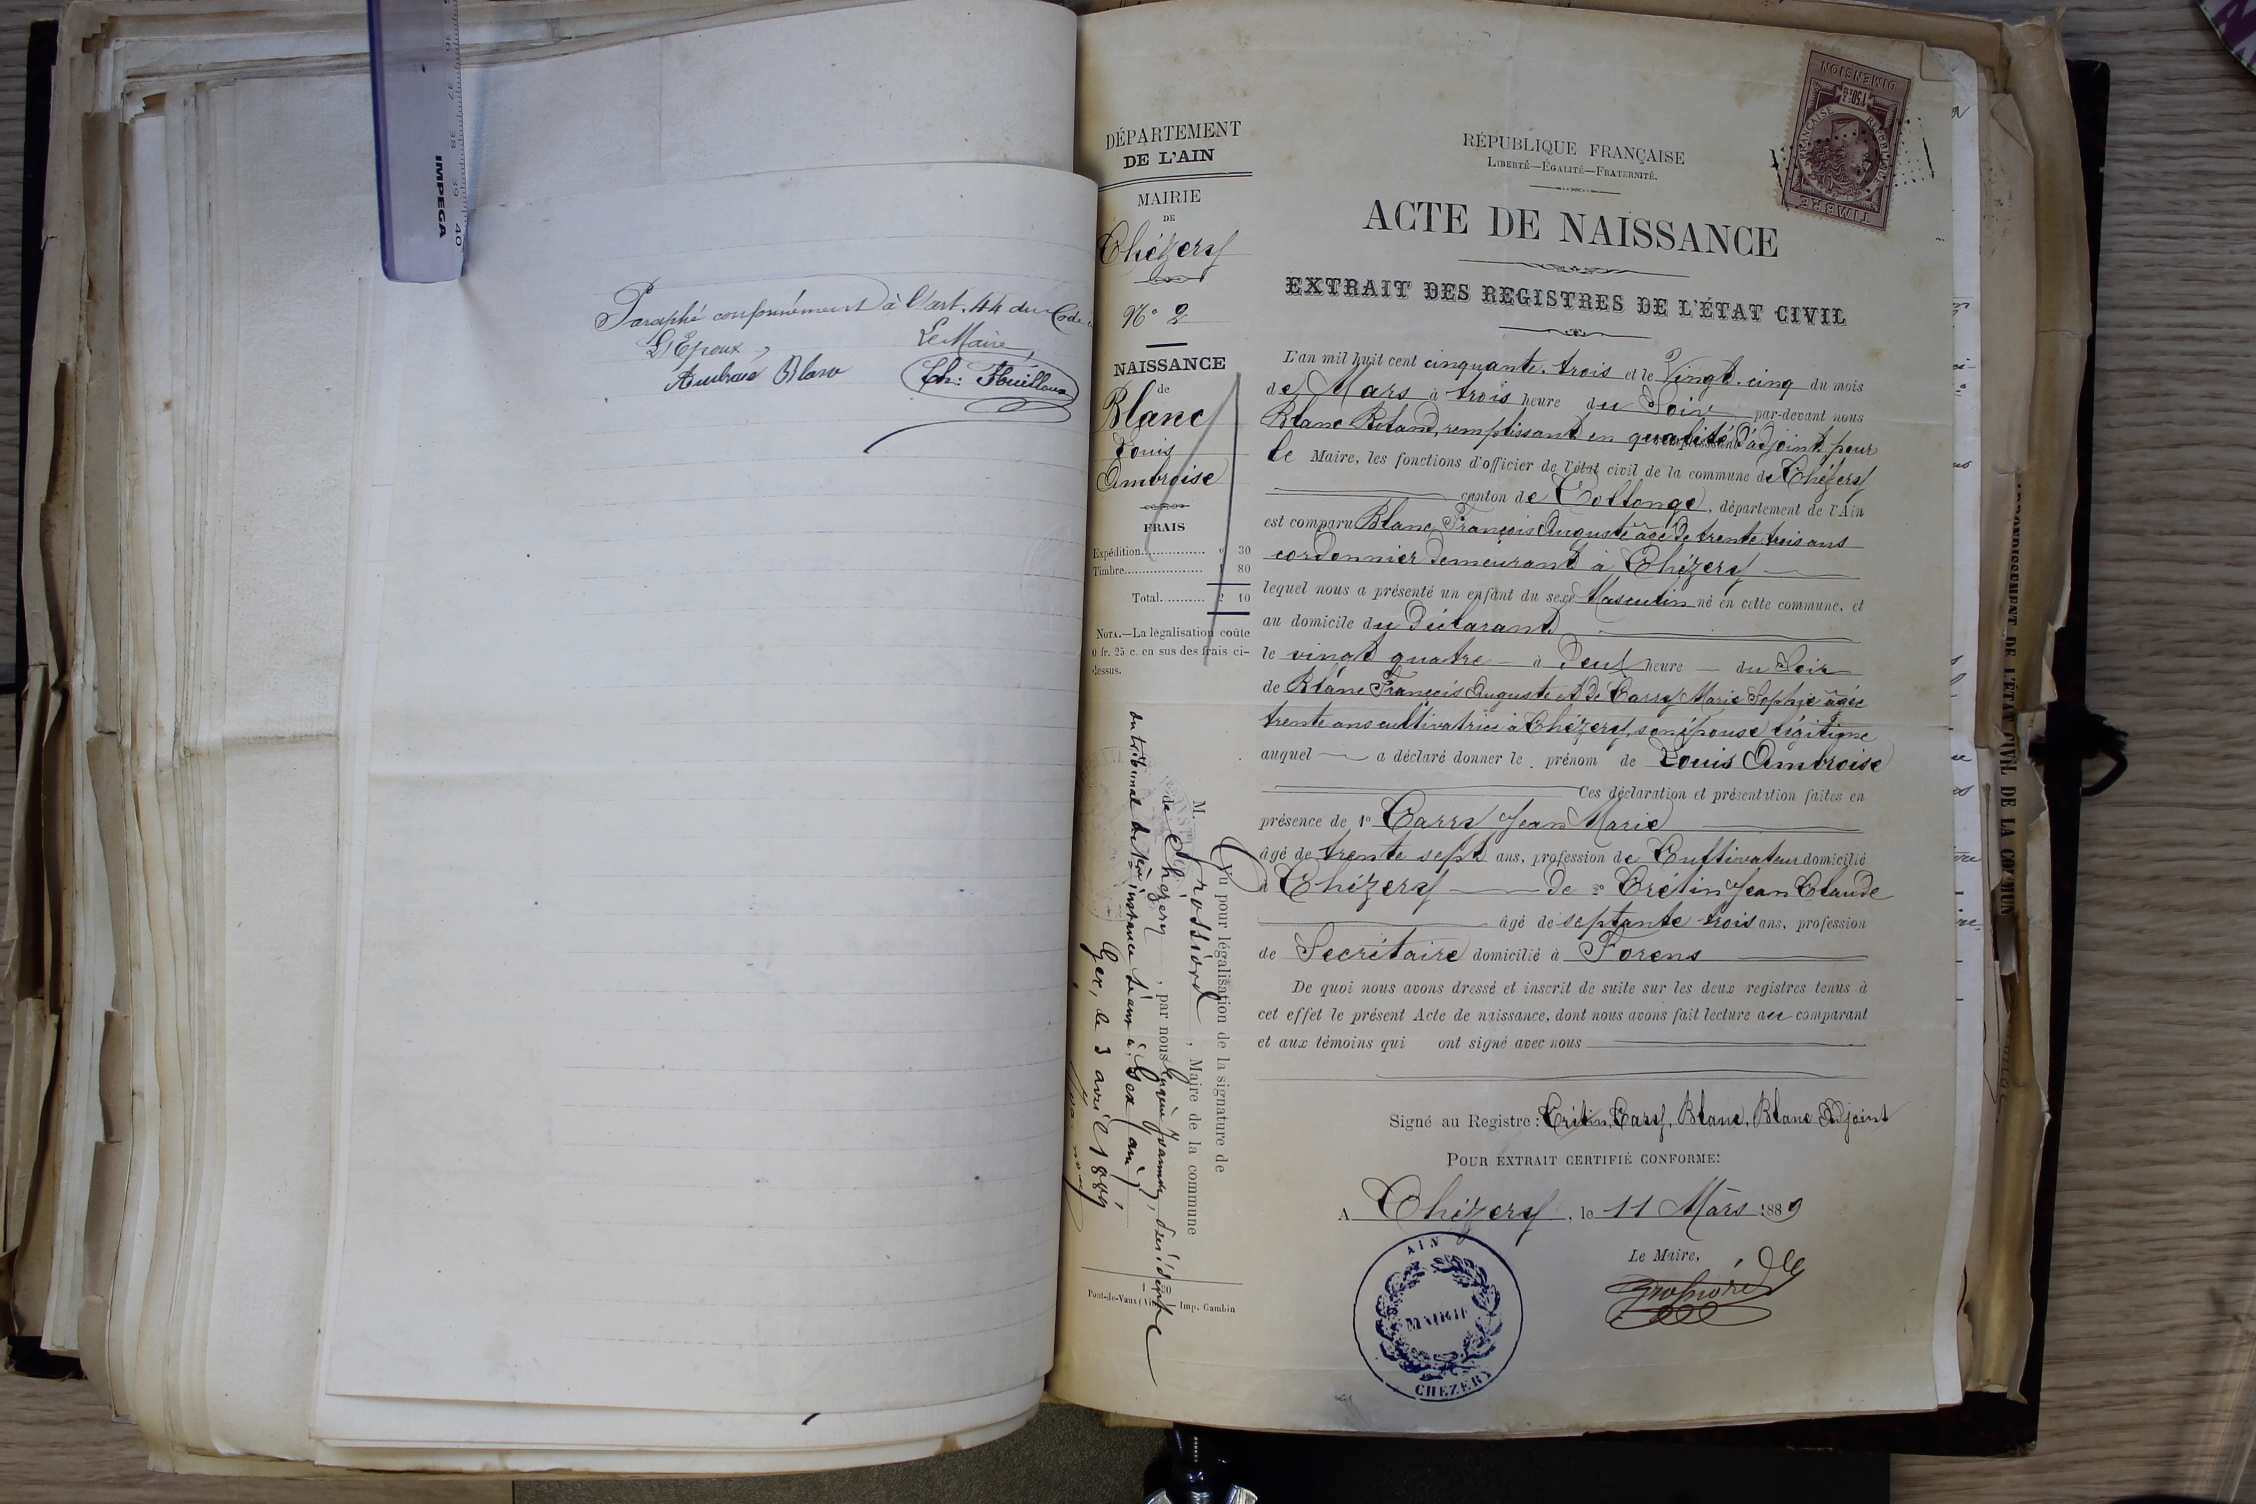 IMPEGA
37 38 39 40
Paraphé conformément à l'art. 44 du Code
L'Epoux, Le Maire,
Ambroise Blanc Ch: Fouilloux
DÉPARTEMENT
DE L'AIN
MAIRIE
DE
Chézery
No 2
NAISSANCE
de
Blanc
Louis
Ambroise
FRAIS
Expédition............... " 30
Timbre.................... 1 80
Total.......... 2 10
NOTA.—La légalisation coûte
0 fr. 25 c. en sus des frais ci-
dessus.
Vu pour légalisation de la signature de
M. Grossiord, Maire de la commune
de Chézery, par nous Président
du tribunal de 1ère instance séant à Gex (ain)
Gex, le 3 avril 1889
Pont-de-Vaux (Ain) Imp. Gambin
TIMBRE
DIMENSION
RÉPUBLIQUE FRANÇAISE
LIBERTÉ—EGALITÉ—FRATERNITÉ.
ACTE DE NAISSANCE
EXTRAIT DES REGISTRES DE L'ÉTAT CIVIL
L'an mil huit cent cinquante-trois et le Vingt-cinq du mois
de Mars à trois heure du Soir par-devant nous
Blanc Roland, remplissant en qualité d'adjoint pour
le Maire, les fonctions d'officier de l'état civil de la commune de Chézery
canton de Collonge, département de l'Ain
est comparu Blanc François Auguste âgé de trente trois ans
cordonnier demeurant à Chézery
lequel nous a présenté un enfant du sexe Masculin né en cette commune, et
au domicile du Déclarant
le vingt quatre à Deux heure du Soir
de Blanc François Auguste et de Carry Marie Sophie âgée
trente ans cultivatrice à Chézery, son épouse légitime
auquel a déclaré donner le prénom de Louis Ambroise
Ces déclaration et présentation faites en
présence de 1o Carry Jean Marie
âgé de trente sept ans, profession de Cultivateur domicilié
à Chézery De 2o Crétin Jean Claude
âgé de septante trois ans, profession
de Secrétaire domicilié à Forens
De quoi nous avons dressé et inscrit de suite sur les deux registres tenus à
cet effet le présent Acte de naissance, dont nous avons fait lecture au comparant
et aux témoins qui ont signé avec nous
Signé au Registre: Crétin, Carry, Blanc, Blanc Adjoint
POUR EXTRAIT CERTIFIÉ CONFORME:
A Chézery, le 11 Mars 1889
Le Maire,
AIN
MAIRIE
CHÉZERY
DE L'ÉTAT CIVIL DE LA COMMUN